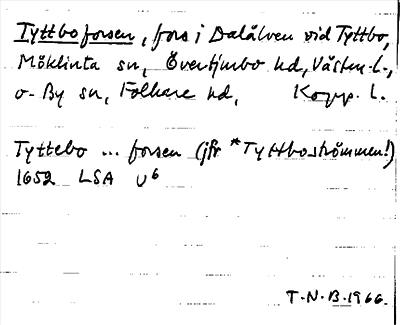 Tyttboforsen, fors i Dalälven vid Tyttbo,
Möklinta sn, Övertjurbo hd, Västm.l.,
o. By sn, Folkare hd, Kopp. l.
Tyttebo ... forsen (jfr *Tyttboströmmen!)
1652 LSA U6
T.N.B.1966.